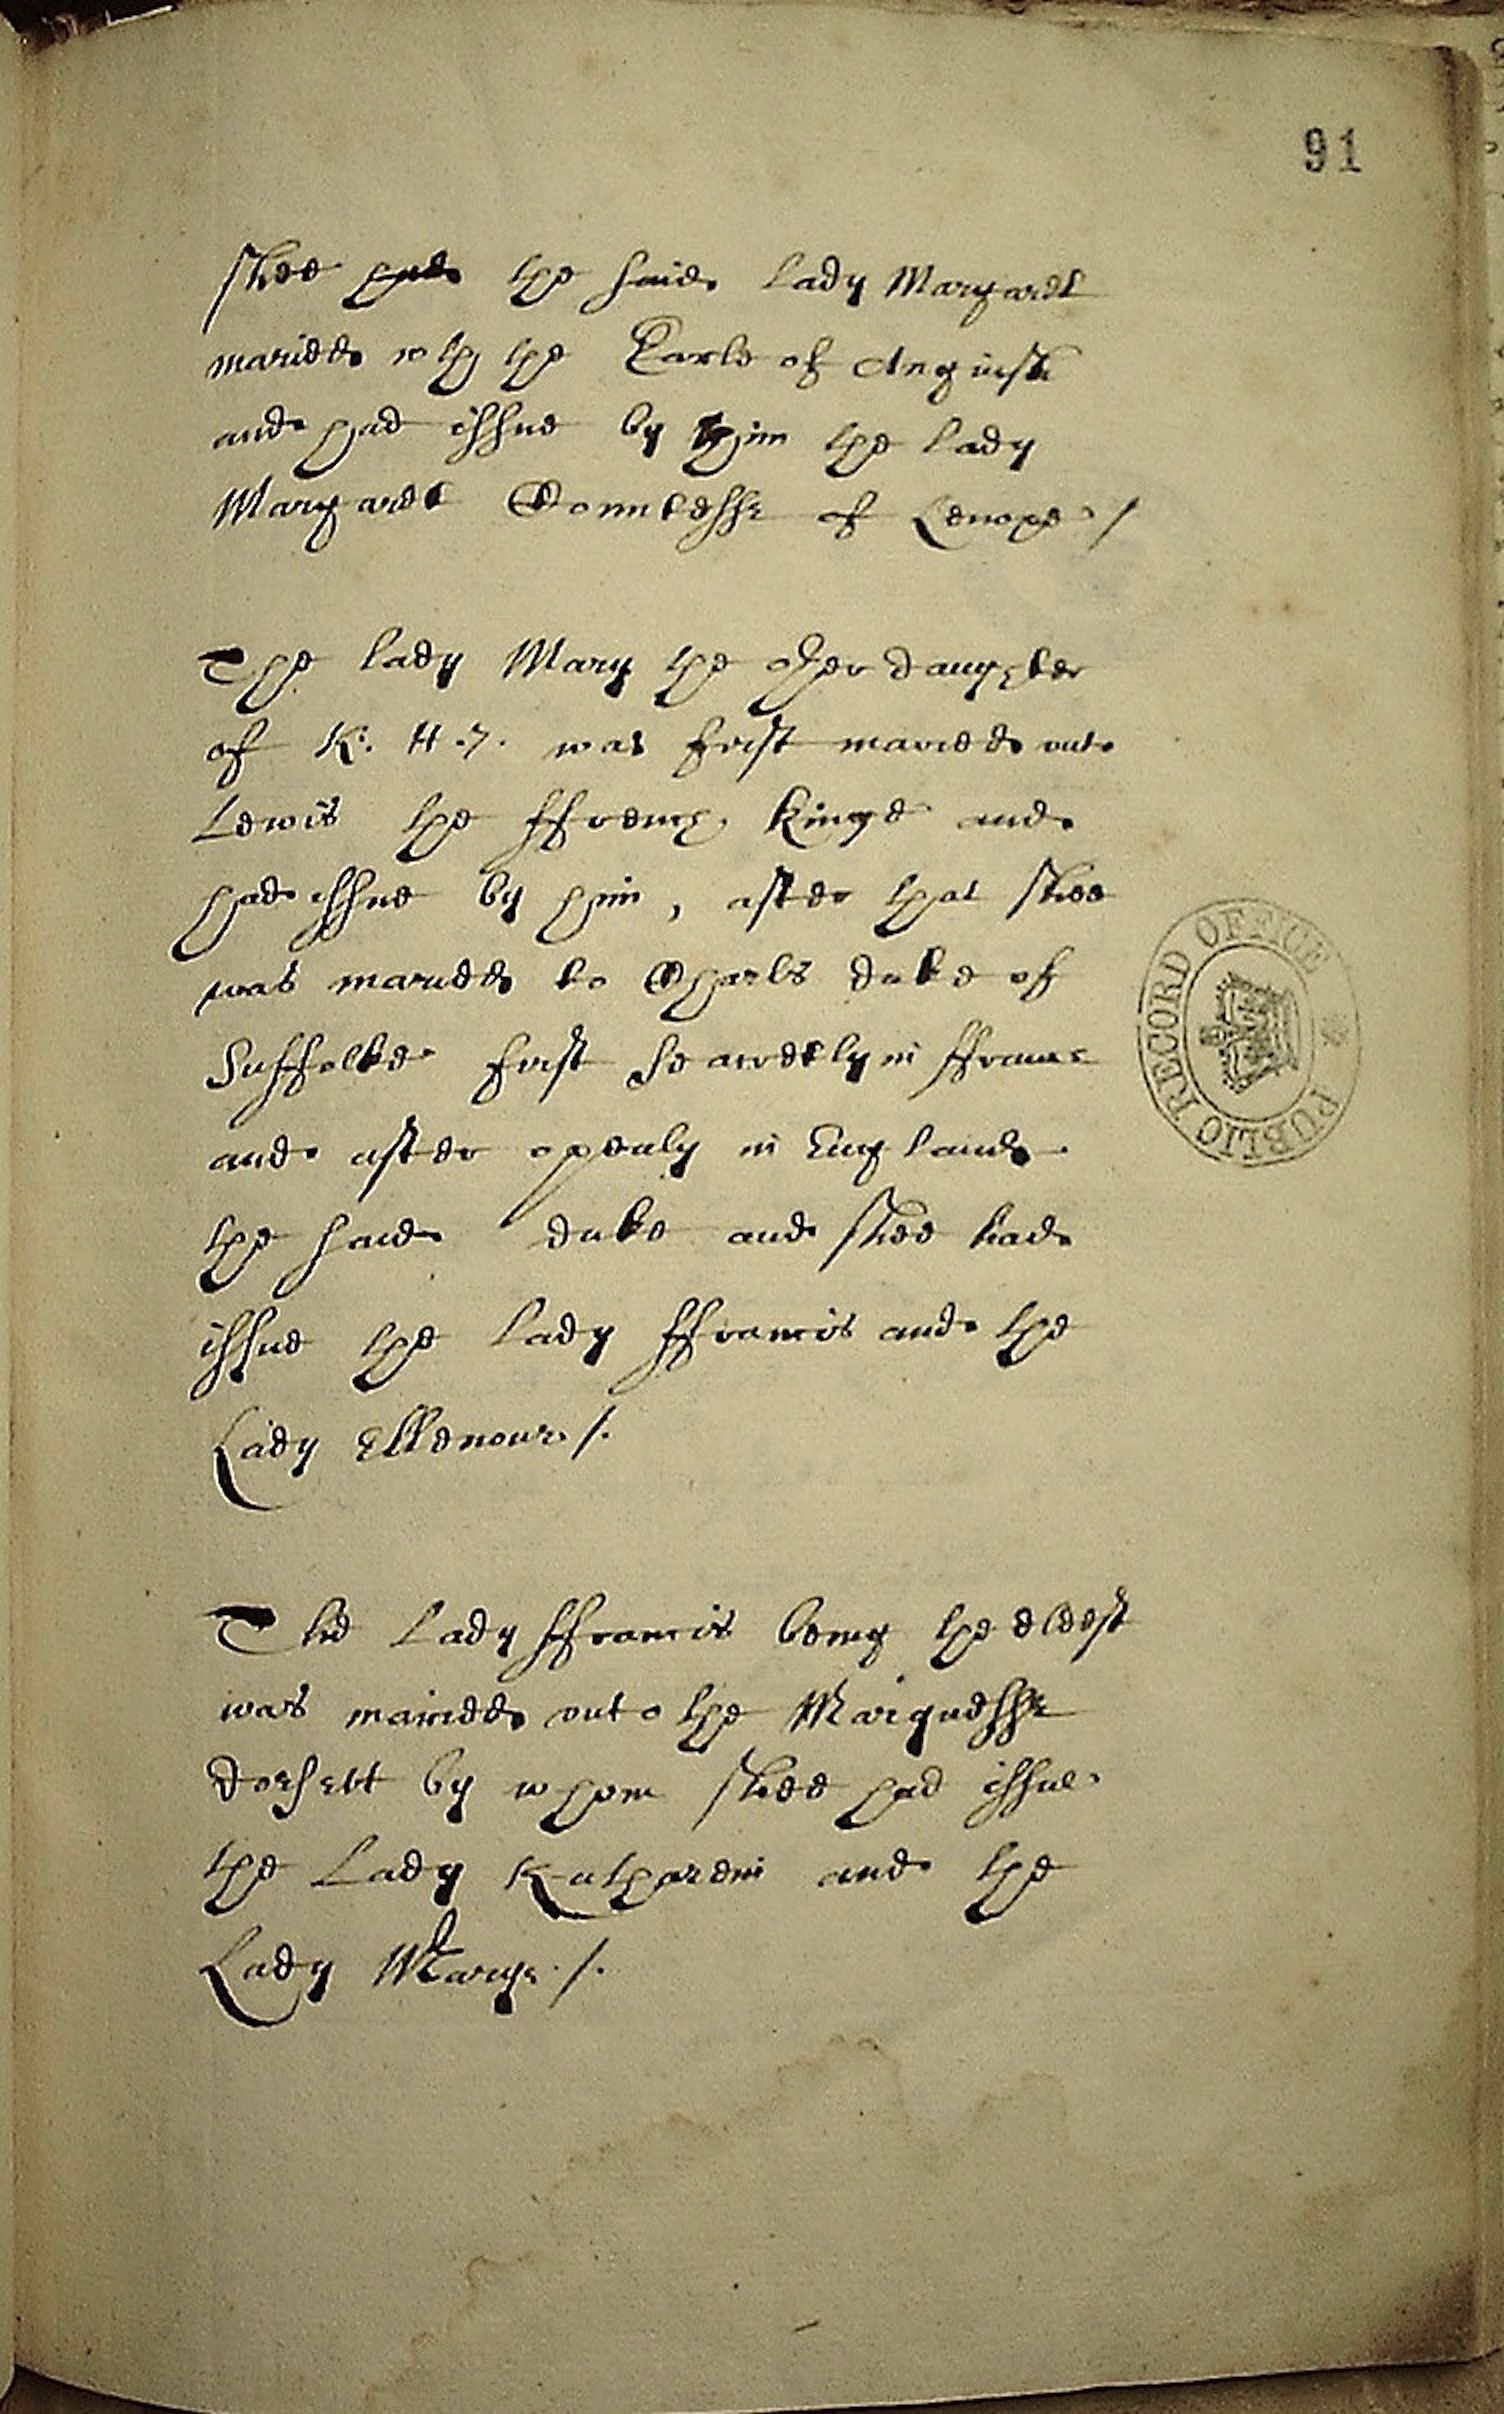 91
shee had the said Lady Margaret
maried wth the Earle of Anguishe
and had issue by him the Lady
Margaret Countesse of Lenoxe ./
The Lady Mary the other daughter
of K: H. 7. was first maried unto
Lewis the ffrench kinge and
had issue by him, after that shee
was maried to Charls duke of
Suffolke first secretly in ffraunce
and after openly in England
the said duke and shee had
issue the Lady ffrancis and the
Lady Ellenour ./.
The Lady ffrancis being the eldest
was maried unto the Marquesse
dorsett by whom shee had issue
the Lady Katharem and the
Lady Marye ./.
PUBLIC RECORD OFFICE